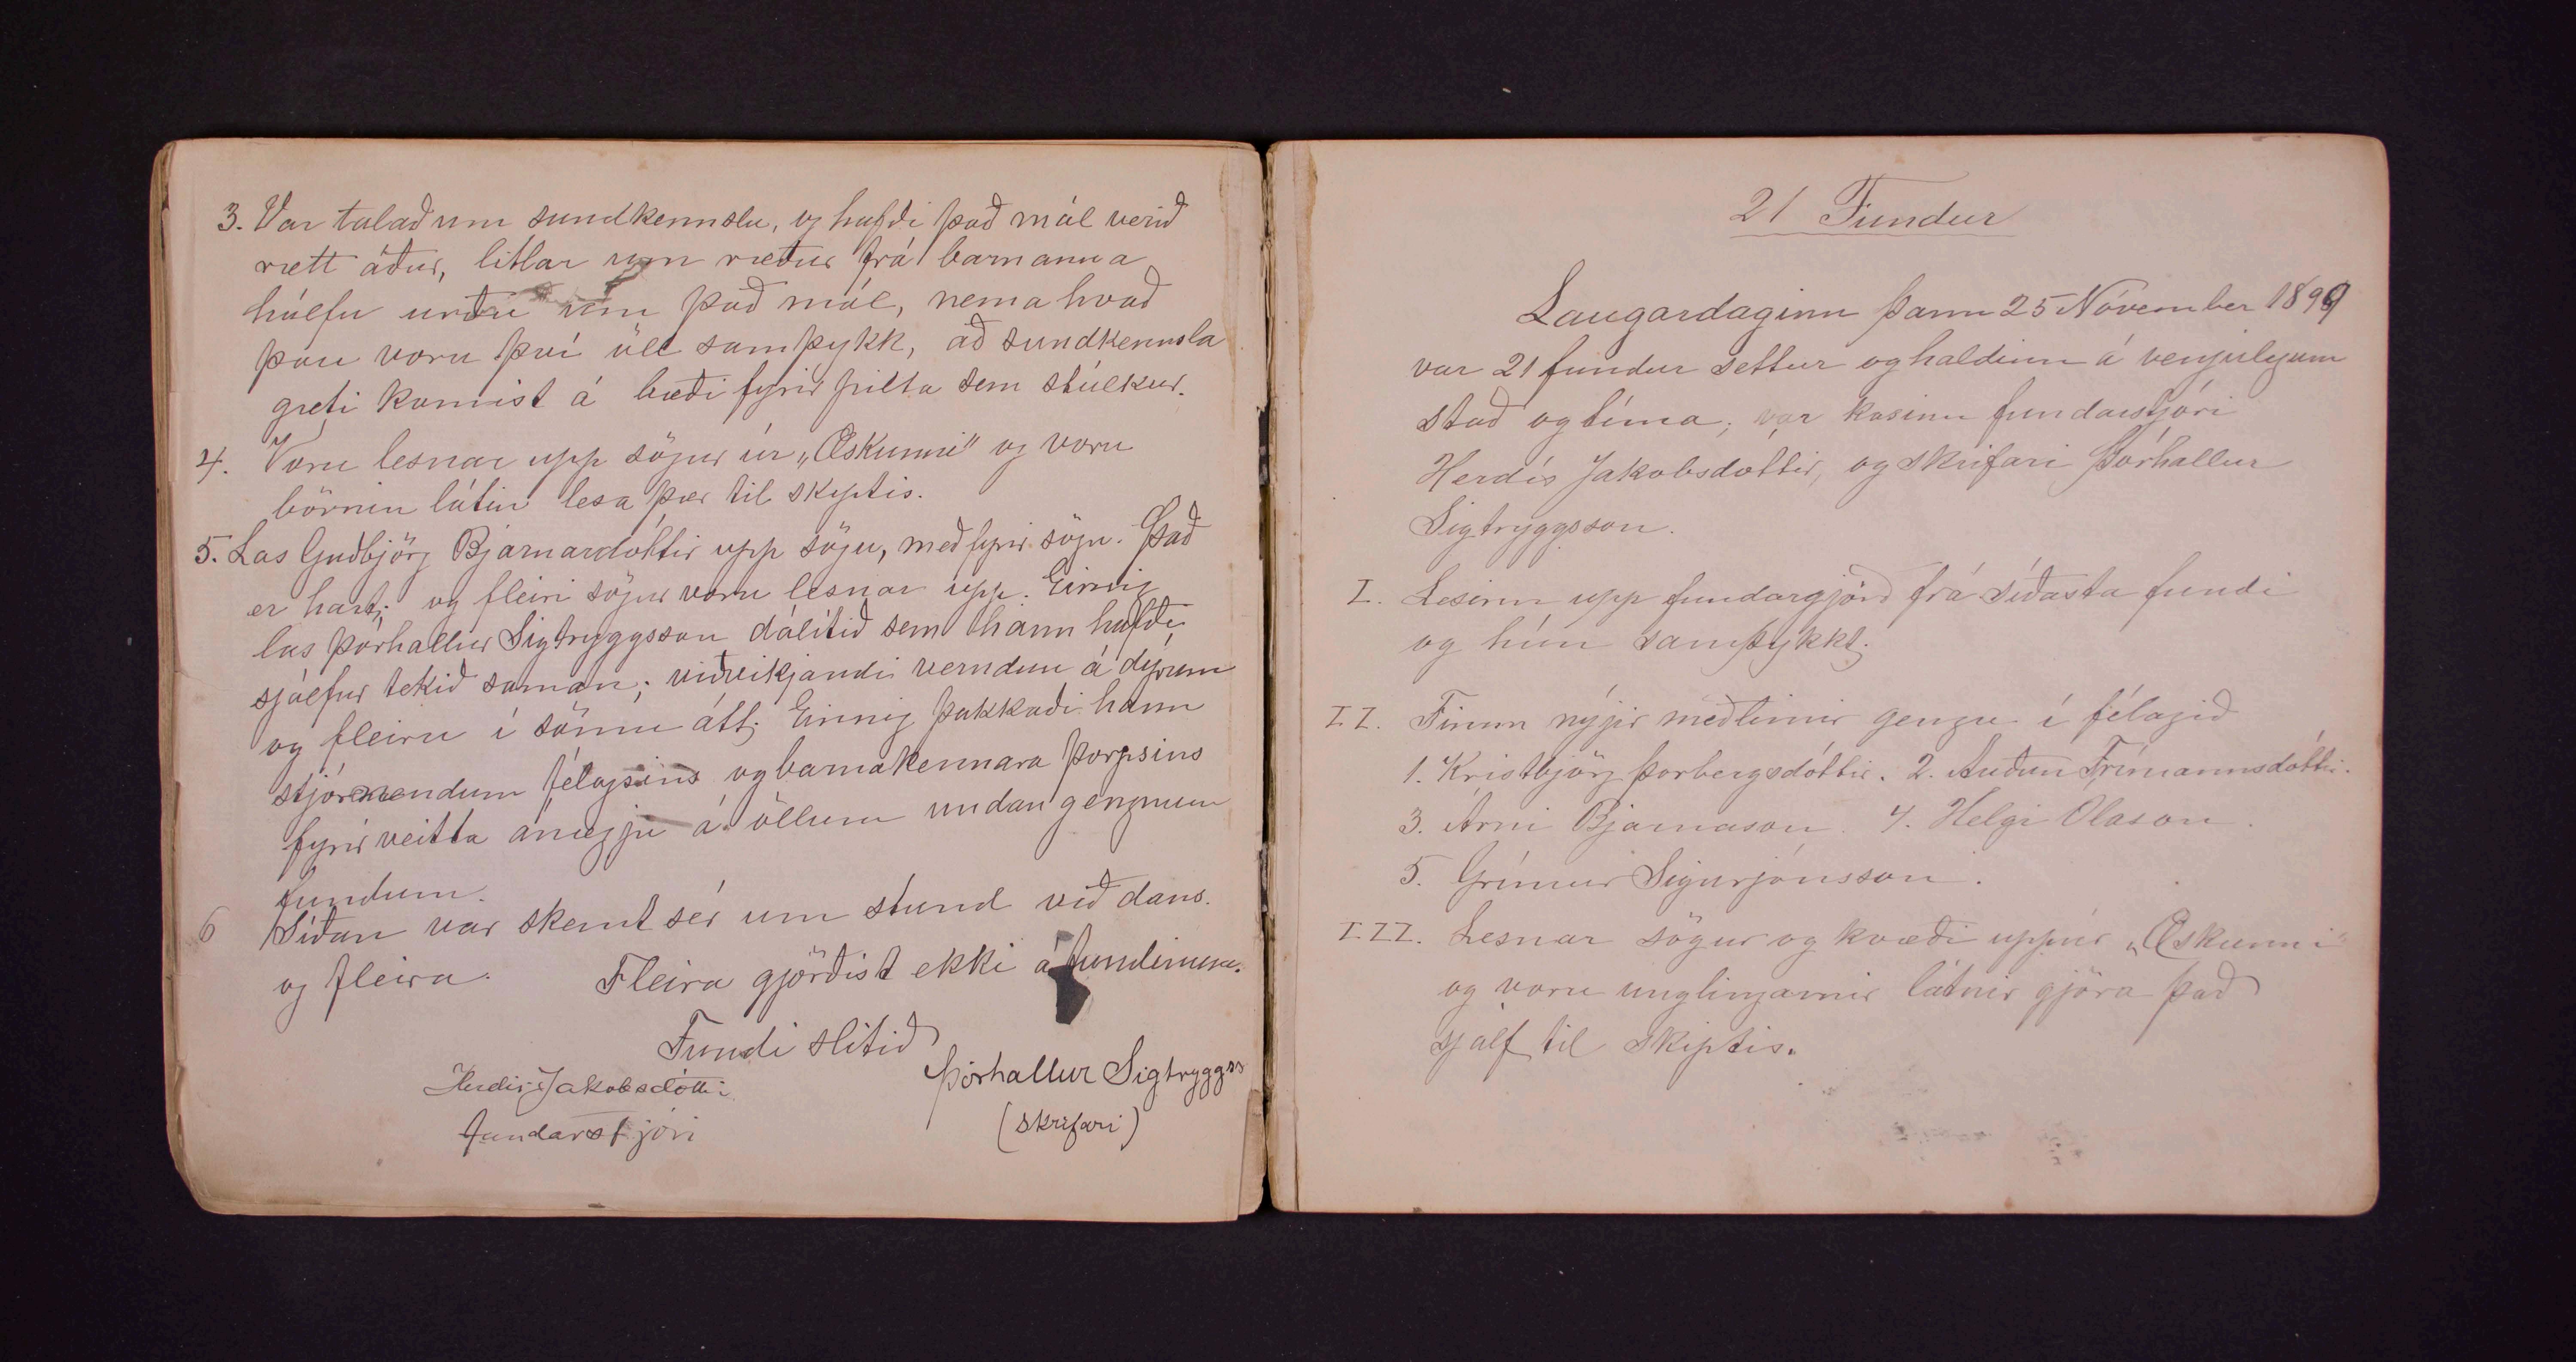 3. Var talað um sundkennslu, og hafði það mál verið
rætt áður, litlar um ræður frá barnanna
hálfu urðu um það mál, nema hvað
þau voru því öll samþykk, að sundkennsla
gæti komist á bæði fyrir pilta sem stúlkur.
4. Voru lesnar upp sögur úr „Æskunni" og voru
börnin látin lesa þær til skyptis.
5. Las Guðbjörg Bjarnardóttir upp sögu, með fyrir sögn. Það
er hart; og fleiri sögur voru lesnar upp. Einnig
las Þórhallur Sigtryggsson dálítið sem hann hafði
sjálfur tekið saman; viðvikjandi verndun á dýrum
og fleiru í sömu átt; Einnig þakkaði hann
stjórnendum félagsins og barnakennara þorpsins
fyrir veitta ánægju á öllum undangengnum
fundum.
6 Síðan var skemt sér um stund við dans.
og fleira. Fleira gjörðist ekki á fundinum.
Fundi slitið
Herdís Jakobsdóttir Þórhallur Sigtryggss
fundarstjóri (skrifari)
21 Fundur
Laugardaginn þann 25 Nóvember 1899
var 21 fundur settur og haldinn á venjulegum
stað og tíma; var kosinn fundarstjóri
Herdís Jakobsdóttir, og skrifari Þórhallur
Sigtryggsson.
I. Lesinn upp fundargjörð frá síðasta fundi
og hún samþykkt.
II. Fimm nýjir meðlimir gengu í félagið
1. Kristbjörg Þorbergsdóttir. 2. Auðun Frímannsdóttir.
3. Árni Bjarnason. 4. Helgi Olason.
5. Grímur Sigurjónsson.
III. Lesnar sögur og kvæði uppúr „Æskunni"
og voru unglingarnir látnir gjöra það
sjálf til skiptis.